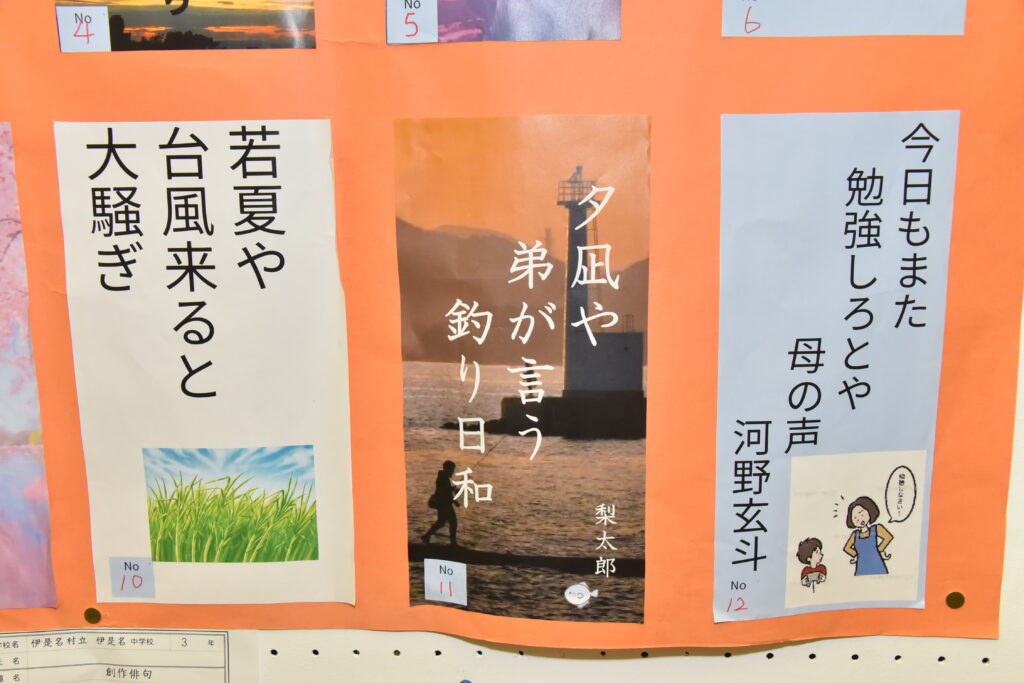 No
4
No
5
6
若夏や
台風来ると
大騒ぎ
No
10
夕凪や
弟が言う
釣り日和
梨太郎
No
11
今日もまた
勉強しろとや
母の声
河野玄斗
勉強しなさい!
No
12
学校名 伊是名村立 伊是名 中学校 3 年
氏名
創作俳句